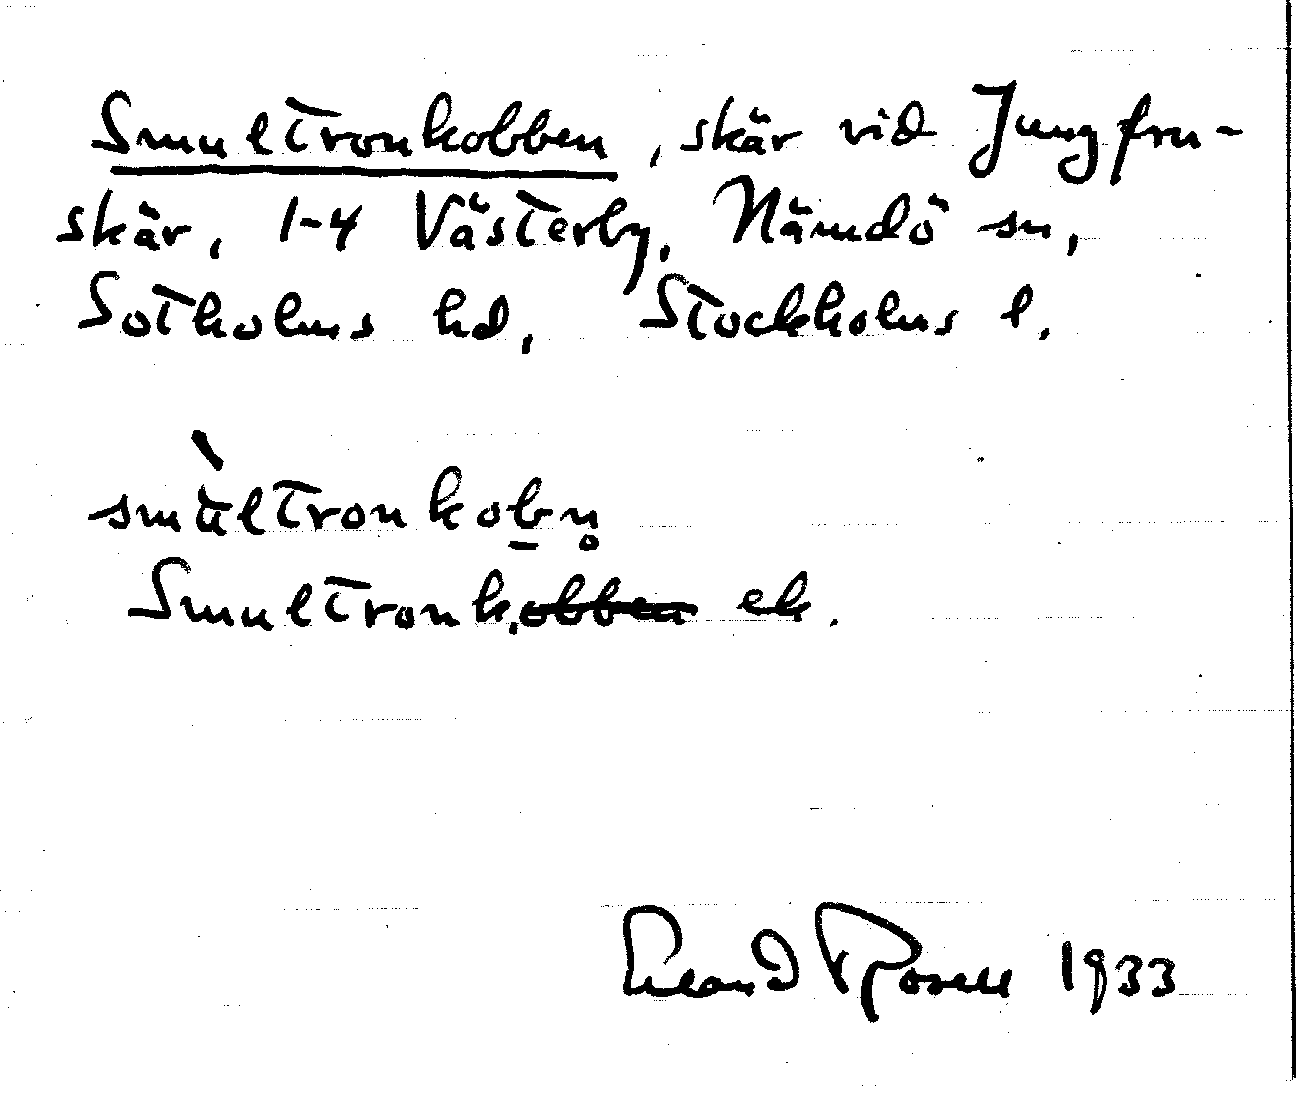 Smultronkobben, skär vid Jungfru-
skär, 1-4 Västerby, Nämdö sn,
Sotholms hd, Stockholms l.
smu̇ltronkobn̥
Smultronk. ek.
Erland Rosell 1933